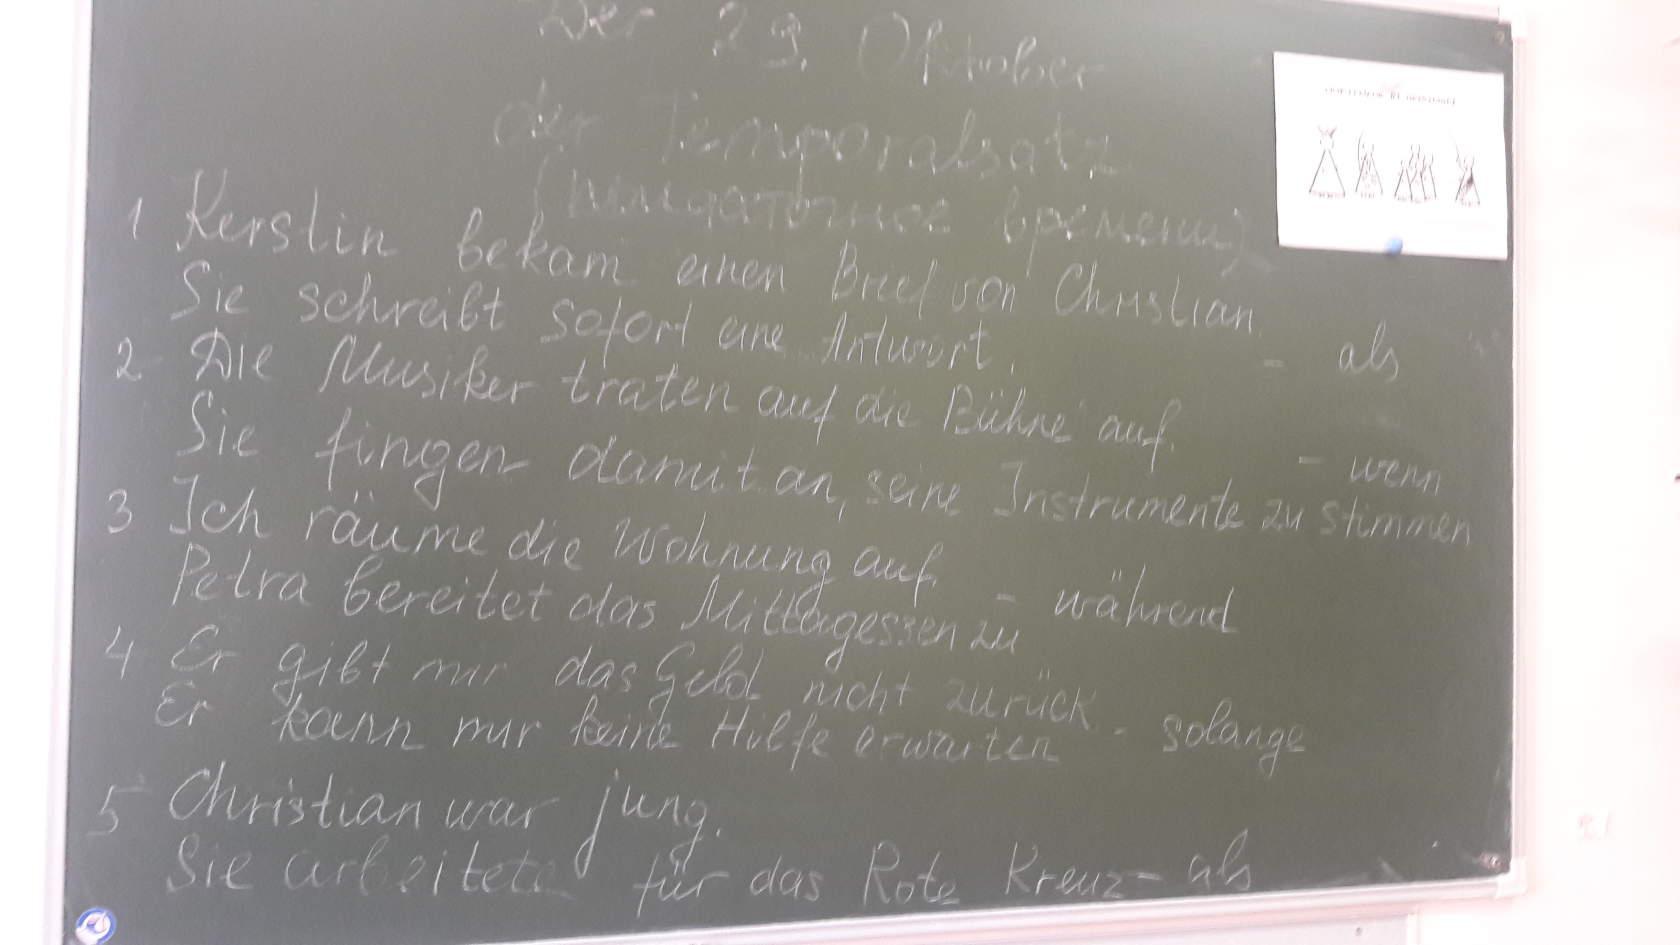 Der 29. Oktober
der Temporalsatz
(придаточное времени)
1 Kerstin bekam einen Brief von Christian.
Sie schreibt sofort eine Antwort. - als
2 Die Musiker traten auf die Bühne auf.
Sie fingen damit an, seine Instrumente zu stimmen - wenn
3 Ich räume die Wohnung auf.
Petra bereitet das Mittagessen zu - während
4 Er gibt mir das Geld nicht zurück
Er kann mir keine Hilfe erwarten - solange
5 Christian war jung.
Sie arbeitete für das Rote Kreuz - als